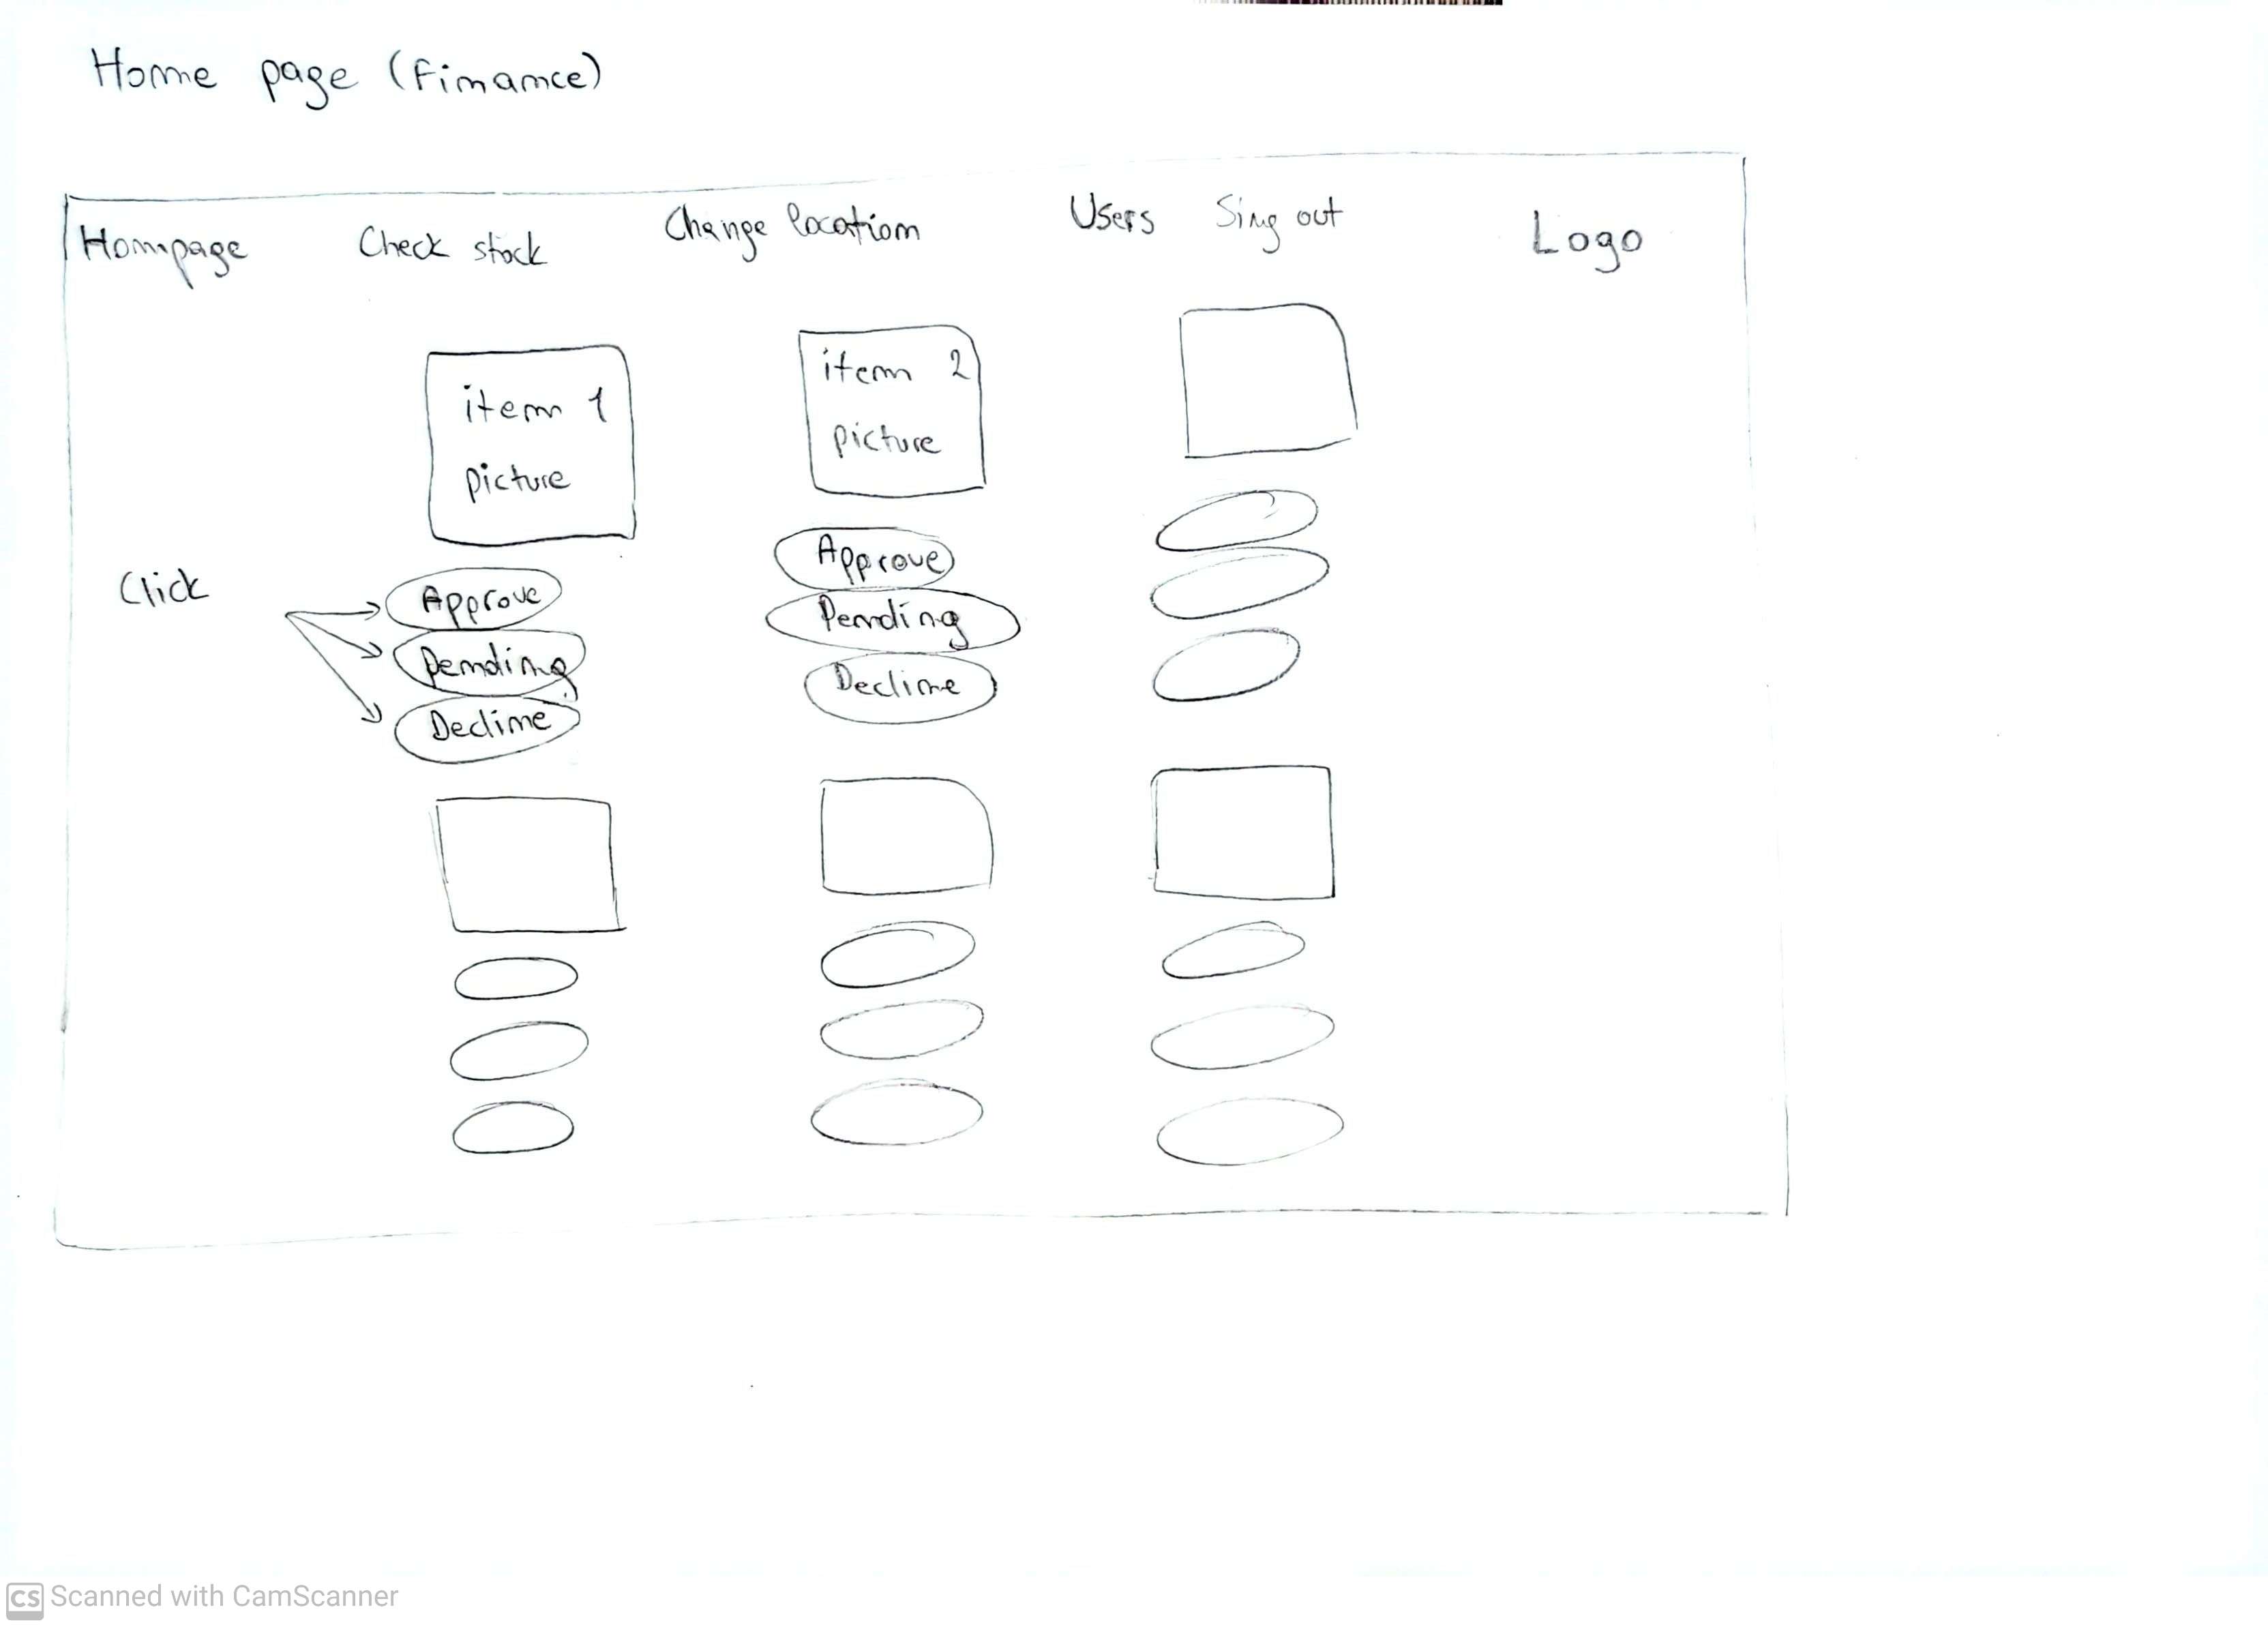 Home page (Finance)
Hompage Check stock Change location Users Sing out Logo
item 1
picture
item 2
picture
Click
Approve
Pending
Decline
Approve
Pending
Decline
CS Scanned with CamScanner